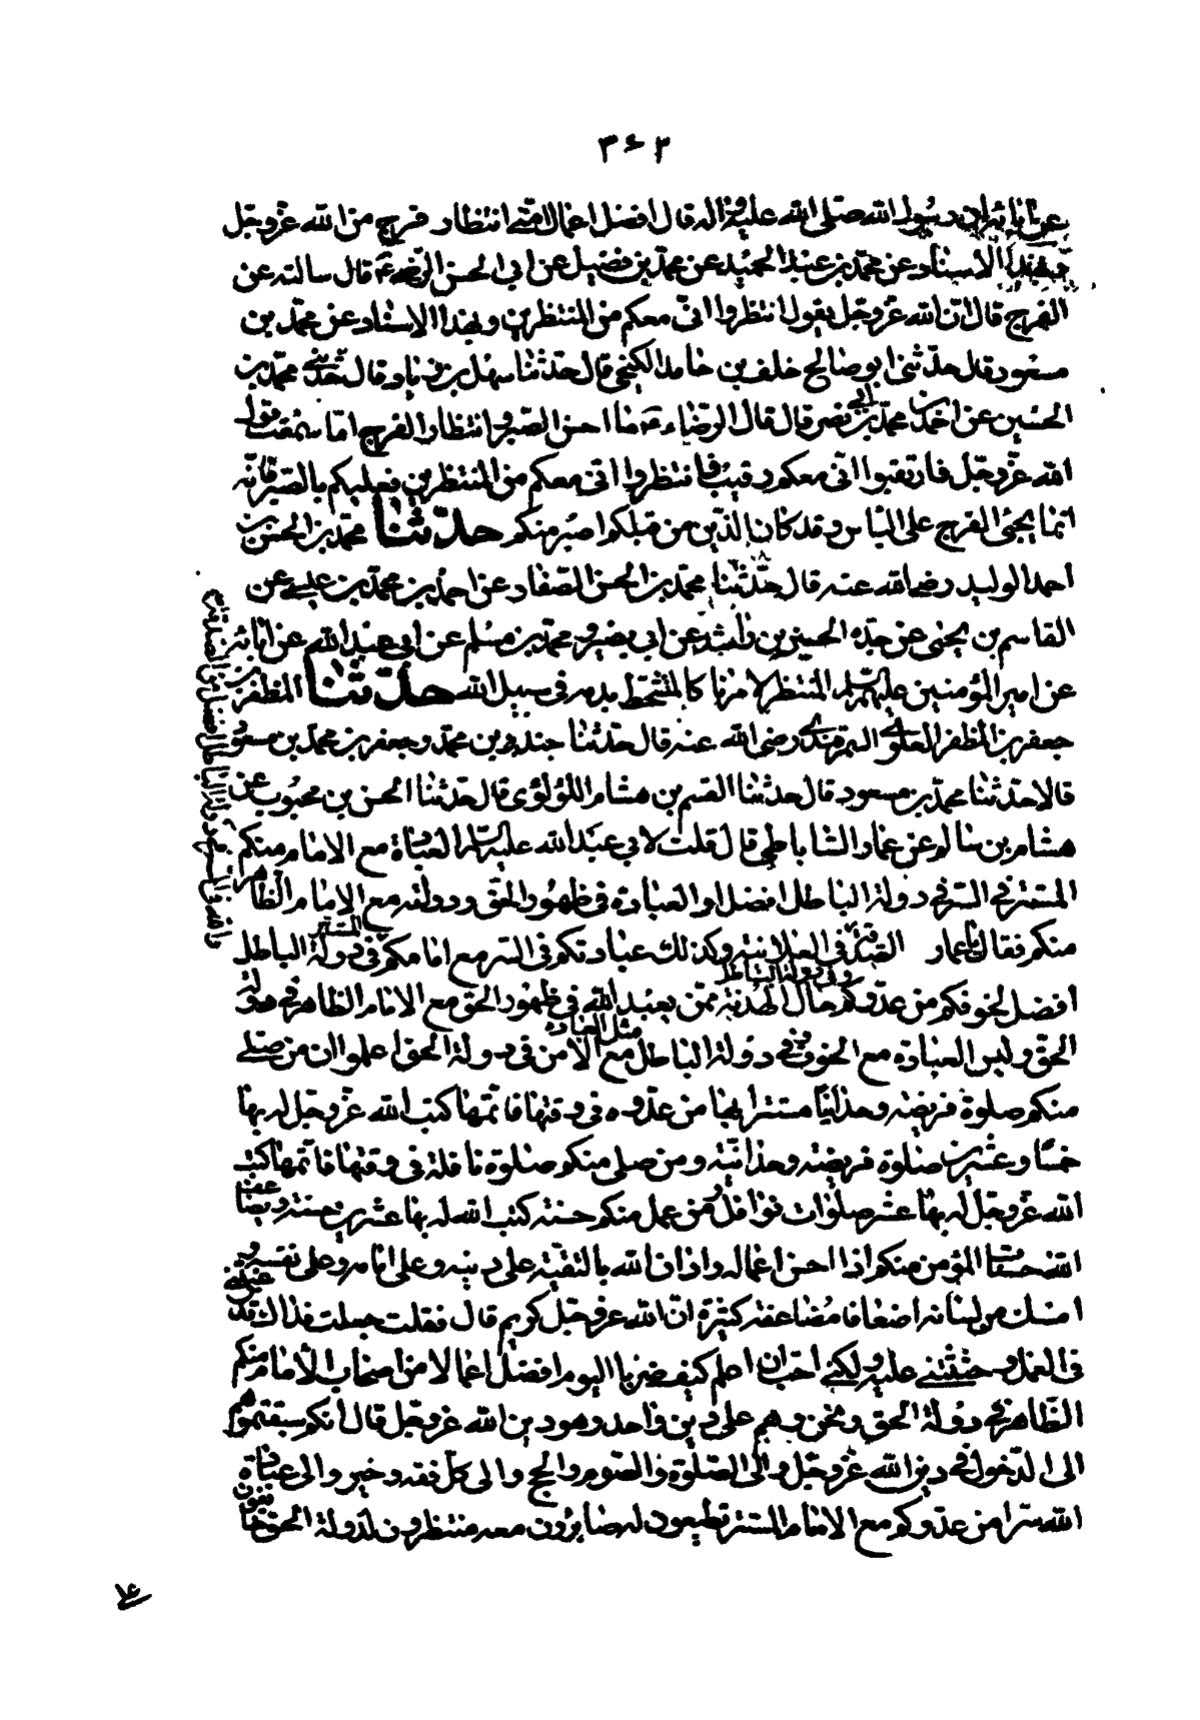 ٣٤٣
عن ابائه ان رسول الله صلى الله عليه واله قال افضل اعمال امتى انتظار فرج من الله عزوجل
وبهذا الاسناد عن محمد بن عبد الحميد عن محمد بن فضيل عن ابى الحسن الرضا ع قال سالته عن
الفرج قال ان الله عزوجل يقول انتظروا انى معكم من المنتظرين وبهذا الاسناد عن محمد بن
مسعود قال حدثنى ابو صالح خلف بن حامد الكنجى قال حدثنا سهل بن زياد قال حدثنى محمد بن
الحسين عن احمد بن محمد بن ابى نصر قال قال الرضا ع ما احسن الصبر وانتظار الفرج اما سمعت قول
الله عزوجل فارتقبوا انى معكم رقيب فانتظروا انى معكم من المنتظرين فعليكم بالصبر فانه
انما يجئ الفرج على الياس وقد كان الذين من قبلكم اصبر منكم حدثنا محمد بن الحسن بن
احمد الوليد رضى الله عنه قال حدثنا محمد بن الحسن الصفار عن احمد بن محمد بن عيسى عن
القاسم بن يحيى عن جده الحسن بن راشد عن ابى بصير و محمد بن مسلم عن ابى عبد الله عن ابائه
عن امير المؤمنين عليهم السلم المنتظر لامرنا كالمتشحط بدمه فى سبيل الله حدثنا المظفر بن
جعفر بن المظفر العلوى السمرقندى رضى الله عنه قال حدثنا حيدر بن محمد وجعفر بن محمد بن مسعود
قالا حدثنا محمد بن مسعود قال حدثنا القسم بن هشام اللؤلؤى قال حدثنا الحسن بن محبوب عن
هشام بن سالم عن عمار الساباطى قال قلت لابي عبد الله عليه السلم العبادة مع الامام منكم
المستتر فى السر فى دولة الباطل افضل او العبادة فى ظهور الحق ودولته مع الامام الظاهر
منكم فقال يا عمار الصدقة فى السر افضل من الصدقة فى العلانية وكذلك عبادتكم فى السر مع امامكم المستتر فى دولة الباطل
افضل لخوفكم من عدوكم فى دولة الباطل وحال الهدنة ممن يعبد الله فى ظهور الحق مع الامام الظاهر فى دولة
الحق وليس العبادة مع الخوف وفى دولة الباطل مثل العبادة مع الامن فى دولة الحق اعلموا ان من صلى
منكم صلوة فريضة وحدانيا مستترا بها من عدوه فى وقتها فاتمها كتب الله عزوجل له بها
خمسا وعشرين صلوة فريضة وحدانية ومن صلى منكم صلوة نافلة فى وقتها فاتمها كتب
الله عزوجل له بها عشر صلوات نوافل ومن عمل منكم حسنة كتب الله له بها عشرين حسنة ويضاعف
الله حسنات المؤمن منكم اذا احسن اعماله ودان الله بالتقية على دينه وعلى امامه وعلى نفسه و
امسك من لسانه اضعافا مضاعفة كثيرة ان الله عزوجل كريم قال فقلت جعلت فداك قد رغبتنى
فى العمل وحثثتنى عليه ولكنى احب ان اعلم كيف صرنا اليوم افضل اعمالا من اصحاب الامام منكم
الظاهر فى دولة الحق ونحن وهم على دين واحد وهو دين الله عزوجل قال انكم سبقتموهم
الى الدخول فى دين الله عزوجل والى الصلوة والصوم والحج والى كل فقه وخير والى عبادة
الله سرا من عدوكم مع الامام المستتر مطيعون له صابرون معه منتظرون لدولة الحق خائفون